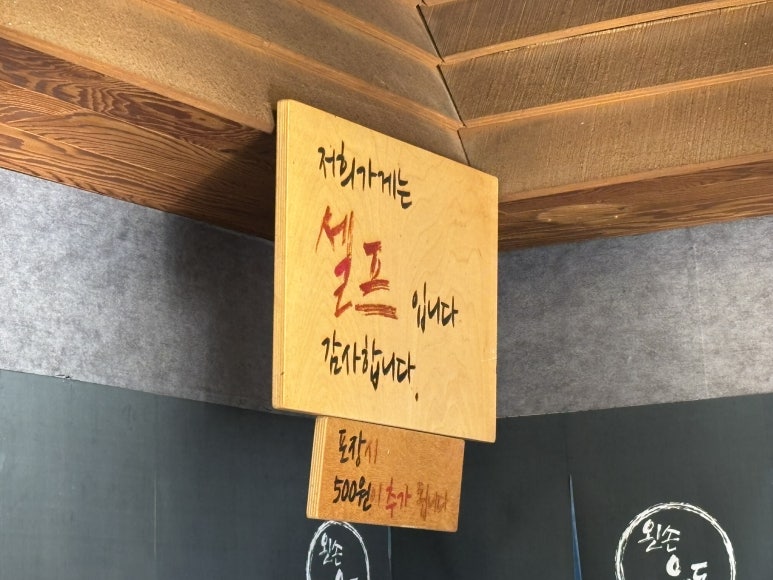 저희가게는
셀프 입니다
감사합니다.
포장시
500원이 추가 됩니다
왼손
왼손